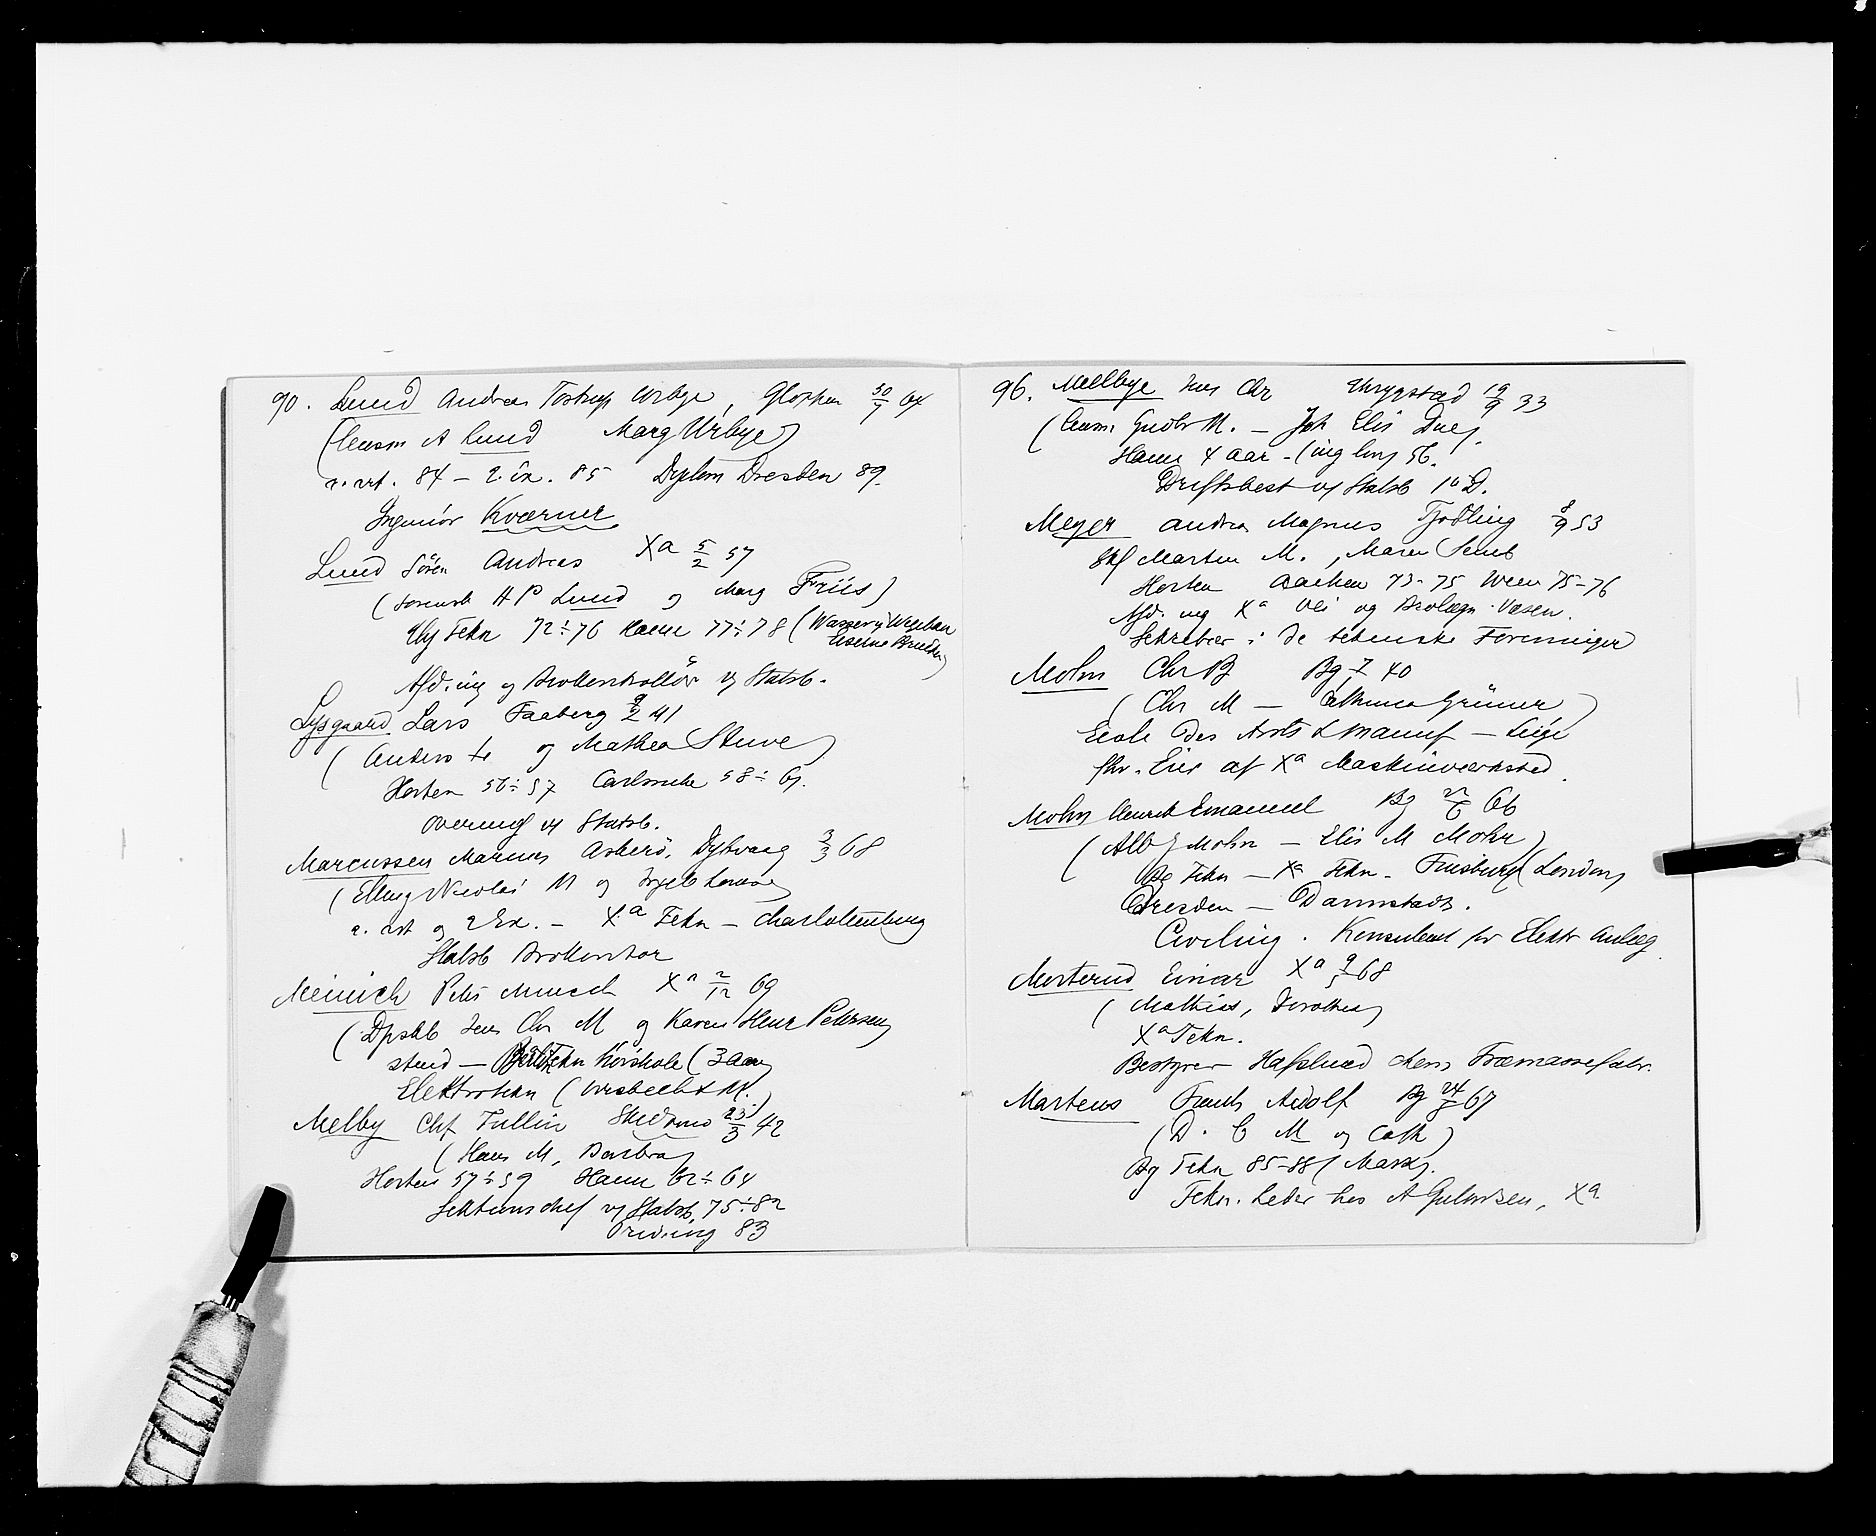 90. Lund Andreas Tostrup Urbye, Gloppen 30/7 64
(Lensm A Lund Marg Urbye)
r. art. 84 – 2. ex. 85 Diplom Dresden 89.
Ingeniör Kværner
Lund Sören Andreas Xa 5/2 57
(Sorensk H P Lund og Marg Friis)
Thj Tekn 72÷76 Hann 77÷78 (Wasser Wegebau
Eiserne Brücken)
Afd. ing og Brokontrollör v Statsb.
Lysgaard Lars Faaberg 9/2 41
(Anders L. og Mathea Stuve)
Horten 56÷57 Carlsruhe 58÷61.
Overing v Statsb.
Marcussen Marius Askerö, Dybvaag 3/3 68
(Ellev Nicolai M og Ingeb Lovise)
r. art og 2 Ex. – Xa Tekn – Charlottenburg
Statsb Brokontor
Meinich Peter Munch Xa 2/12 69
(Dpskb Jens Chr M og Karen Henr Petersen)
stud – Tekn Höiskole (3 aar)
Elektrotekn (
Melby Chf Tullin Skedsmo 23/3 42
(Hans M, Barbra)
Horten 57÷59 Hann 62÷64
Sektionschef v Statsb, 75÷82
Priv. ing 83
96. Mellbye Jens Chr Thrygstad 19/9 33
(Lensm Gudbr M. – Joh Elis Due)
Hann 4 aar – (ing 56.
Driftsbest v Statsb 1o D.
Meyer Andrea Magnus Tjodling 8/9 53
Skf Marten M., Maren Semb
Horten Aachen 73-75 Wien 75-76
Afd. ing Xa Vei og Brolægn. Væsen.
Sekretær i de tekniske Foreninger
Mohn Chr B Bg 7 40
(Chr M – Cathrina Grüner)
Ecole des Arts & Manuf – Liége
fhv. Eier af Xa Maskinværksted.
Mohn Henrik Emanuel Bg 22/6 66
(Alb J Mohn – Elis M Mohr)
Bg Tekn – Xa Tekn – Finsbury (London)
Dresden – Darmstadt.
Civiling. Konsulent for Elektr Anlæg
Morterud Einar Xa 9/5 68
(Mathias, Dorothea)
Xa Tekn.
Bestyrer Hafslund chem Træmassefabr.
Martens Frantz Adolf Bg 24/8 67
(D. C M og Cath)
Bg Tekn 85-88 (Mask).
Tekn. Leder hos A Gulowsen, Xa